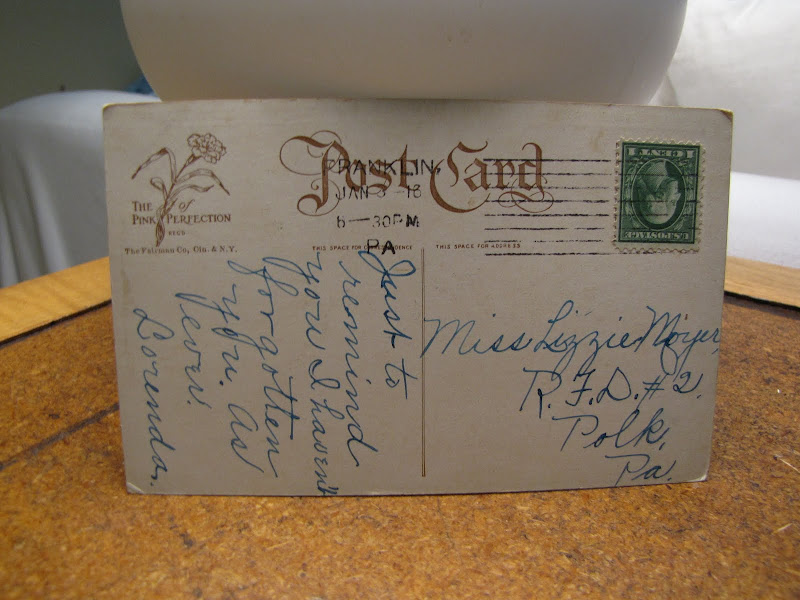 Post Card
THE PINK of PERFECTION
REG'D
The Fairman Co, Cin. & N.Y.
FRANKLIN,
JAN 3 - 16
6 - 30 PM
PA
THIS SPACE FOR CORRESPONDENCE
THIS SPACE FOR ADDRESS
Just to
remind
you I haven't
forgotten
you. As
ever.
Lorenda.
Miss Lizzie Moyer,
R.F.D. #2.
Polk,
Pa.